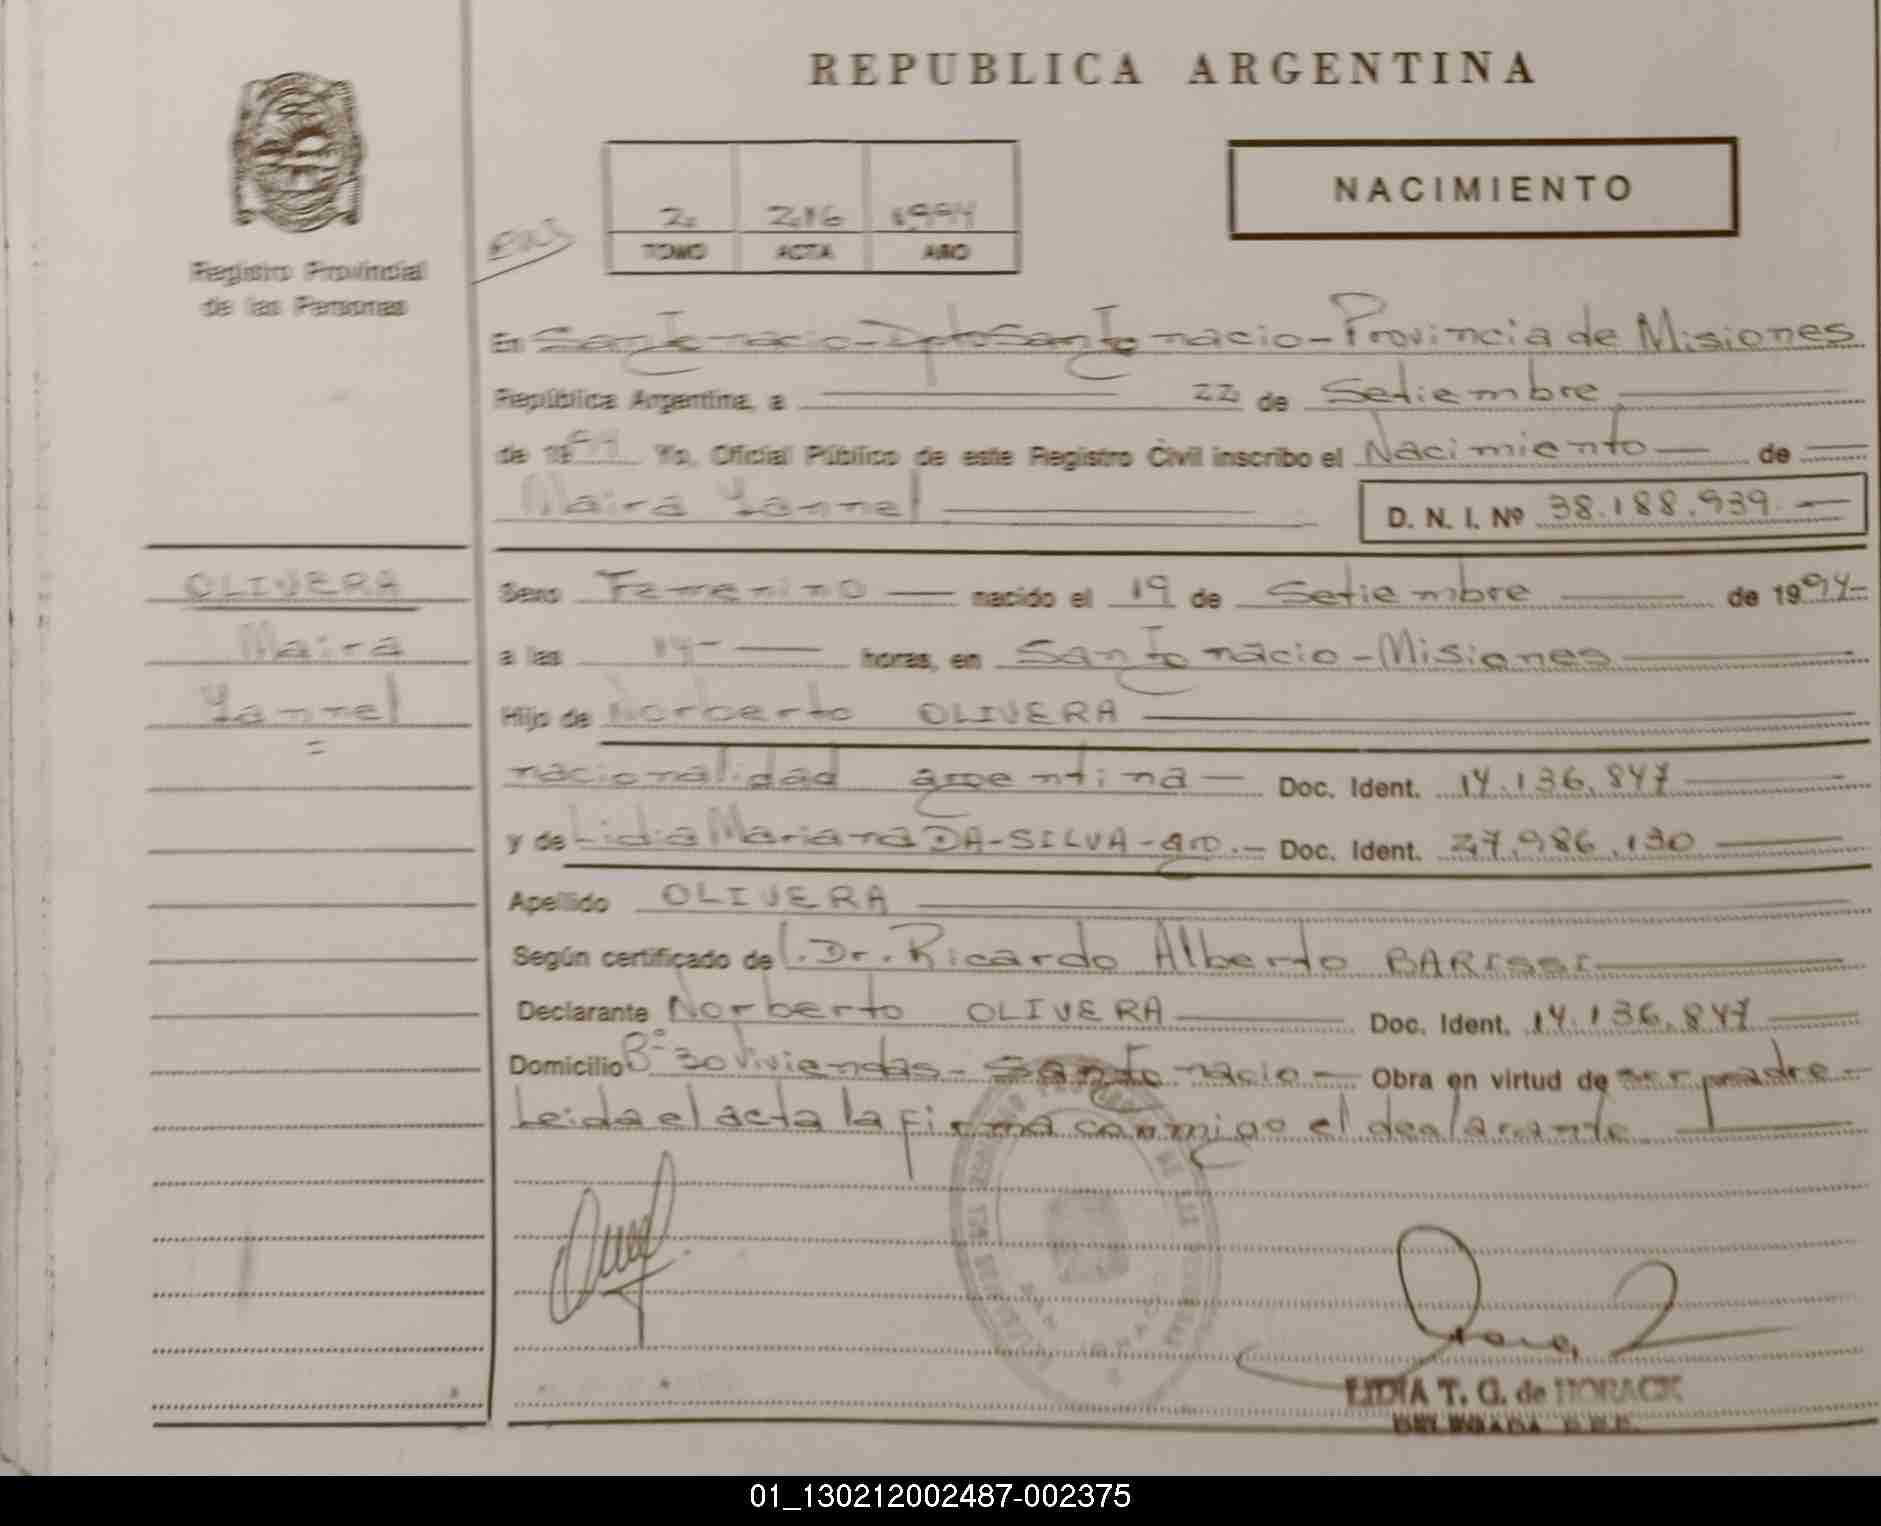 REPUBLICA ARGENTINA
NACIMIENTO
2. 216 1994
TOMO ACTA AÑO
Registro Provincial
de las Personas
En San Ignacio - Dpto San Ignacio - Provincia de Misiones
República Argentina, a 22 de Setiembre
de 1994 Yo, Oficial Público de este Registro Civil inscribo el Nacimiento de
Maira Yannel
D. N. I. Nº 38.188.939.
OLIVERA
Maira
Yannel
Sexo Femenino nacido el 19 de Setiembre de 1994
a las 14 horas, en San Ignacio - Misiones
Hijo de Norberto OLIVERA
nacionalidad argentina Doc. Ident. 14.136.847
y de Lidia Mariana DA-SILVA - arg. Doc. Ident. 27.986.130
Apellido OLIVERA
Según certificado de l. Dr. Ricardo Alberto
Declarante Norberto OLIVERA Doc. Ident. 14.136.847
Domicilio Bº 30 Viviendas - San Ignacio - Obra en virtud de ser padre
Leida el acta la firma conmigo el declarante
LIDIA T. G. de HORACK
01_130212002487-002375